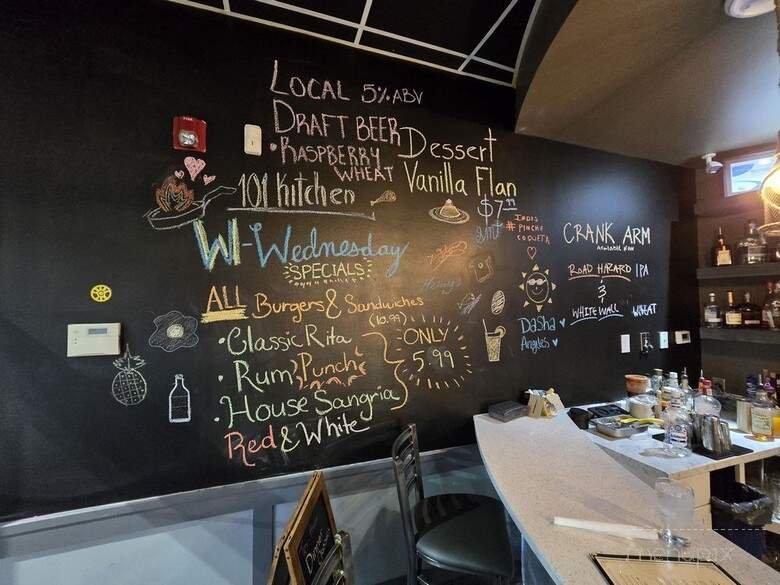 LOCAL 5% ABV
DRAFT BEER
• RASPBERRY
WHEAT
Dessert
Vanilla Flan
$7.99
101 Kitchen
WI-Wednesday
SPECIALS
ALL Burgers & Sandwiches
(10.99)
• Classic Rita
• Rum Punch
• House Sangria
Red & White
ONLY
5.99
INDIS
# PINCHE
COQUETA
Dasha
Angeles
CRANK ARM
AVAILABLE NOW
ROAD HAZARD IPA
&
WHITE WALL WHEAT